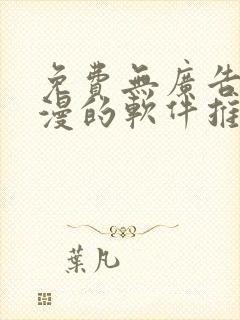 免費無廣告
漫的軟件推
葉凡